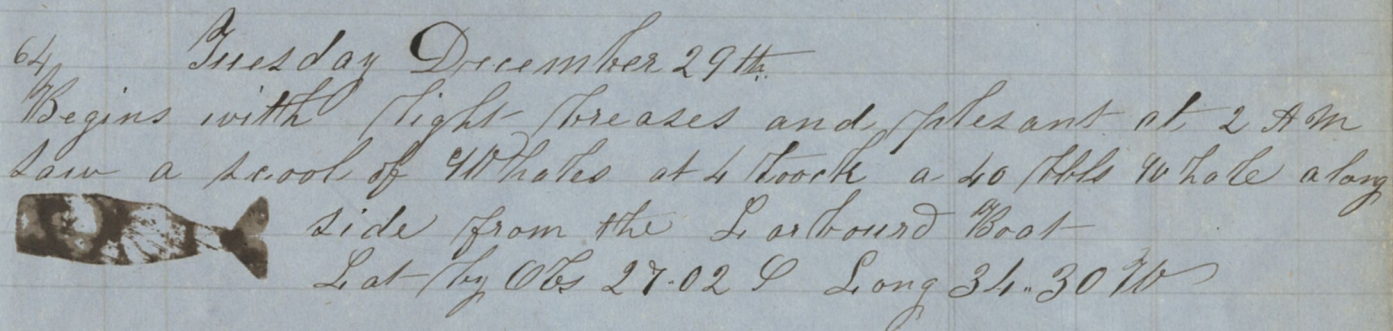 64 Tuesday December 29th
Begins with light breases and plesant at 2 AM
saw a scool of Whales at 4 toock a 40 bbls Whale along
side from the Larbourd Boat
Lat by Obs 27.02 S Long 34.30 W